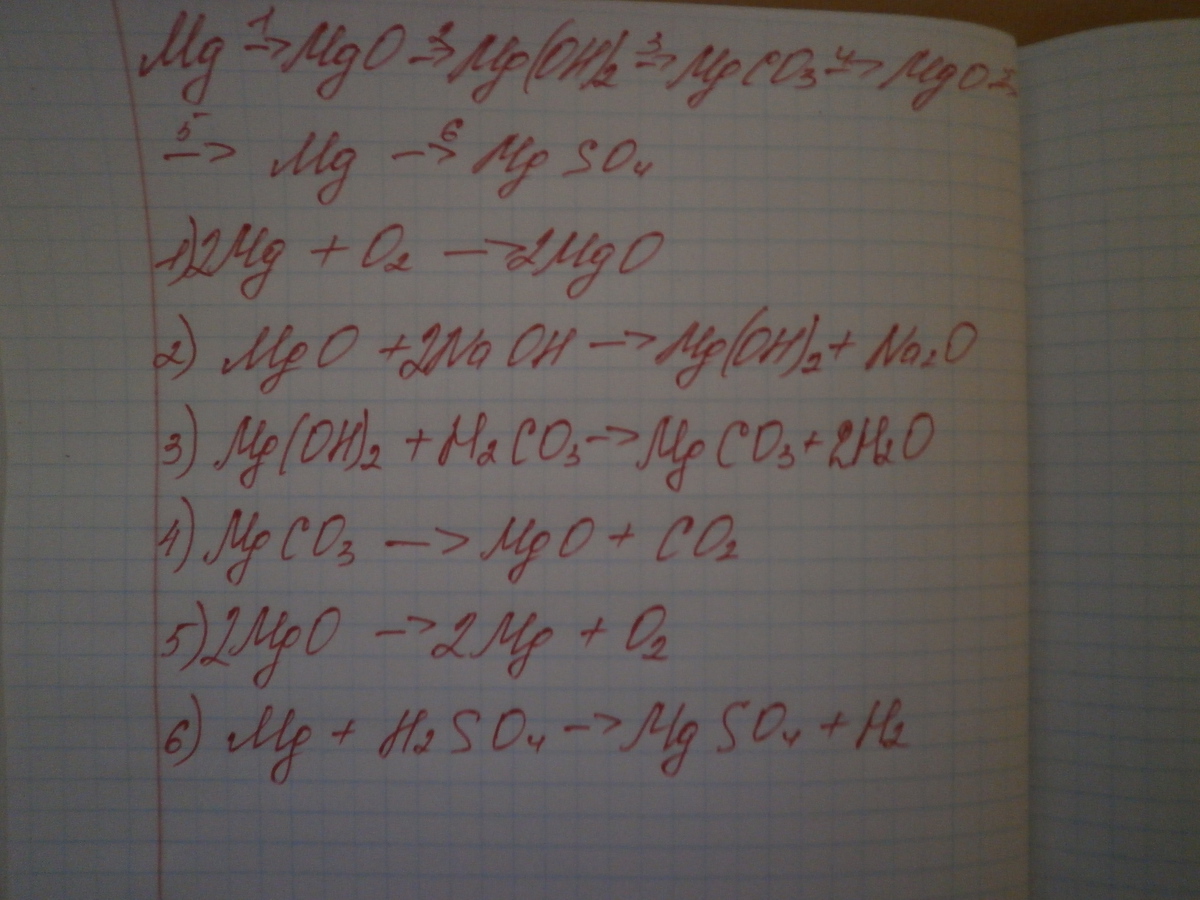 Mg 1→ MgO 2→ Mg(OH)₂ 3→ MgCO₃ 4→ MgO
5→ Mg 6→ MgSO₄
1) 2Mg + O₂ → 2MgO
2) MgO + 2NaOH → Mg(OH)₂ + Na₂O
3) Mg(OH)₂ + H₂CO₃ → MgCO₃ + 2H₂O
4) MgCO₃ → MgO + CO₂
5) 2MgO → 2Mg + O₂
6) Mg + H₂SO₄ → MgSO₄ + H₂